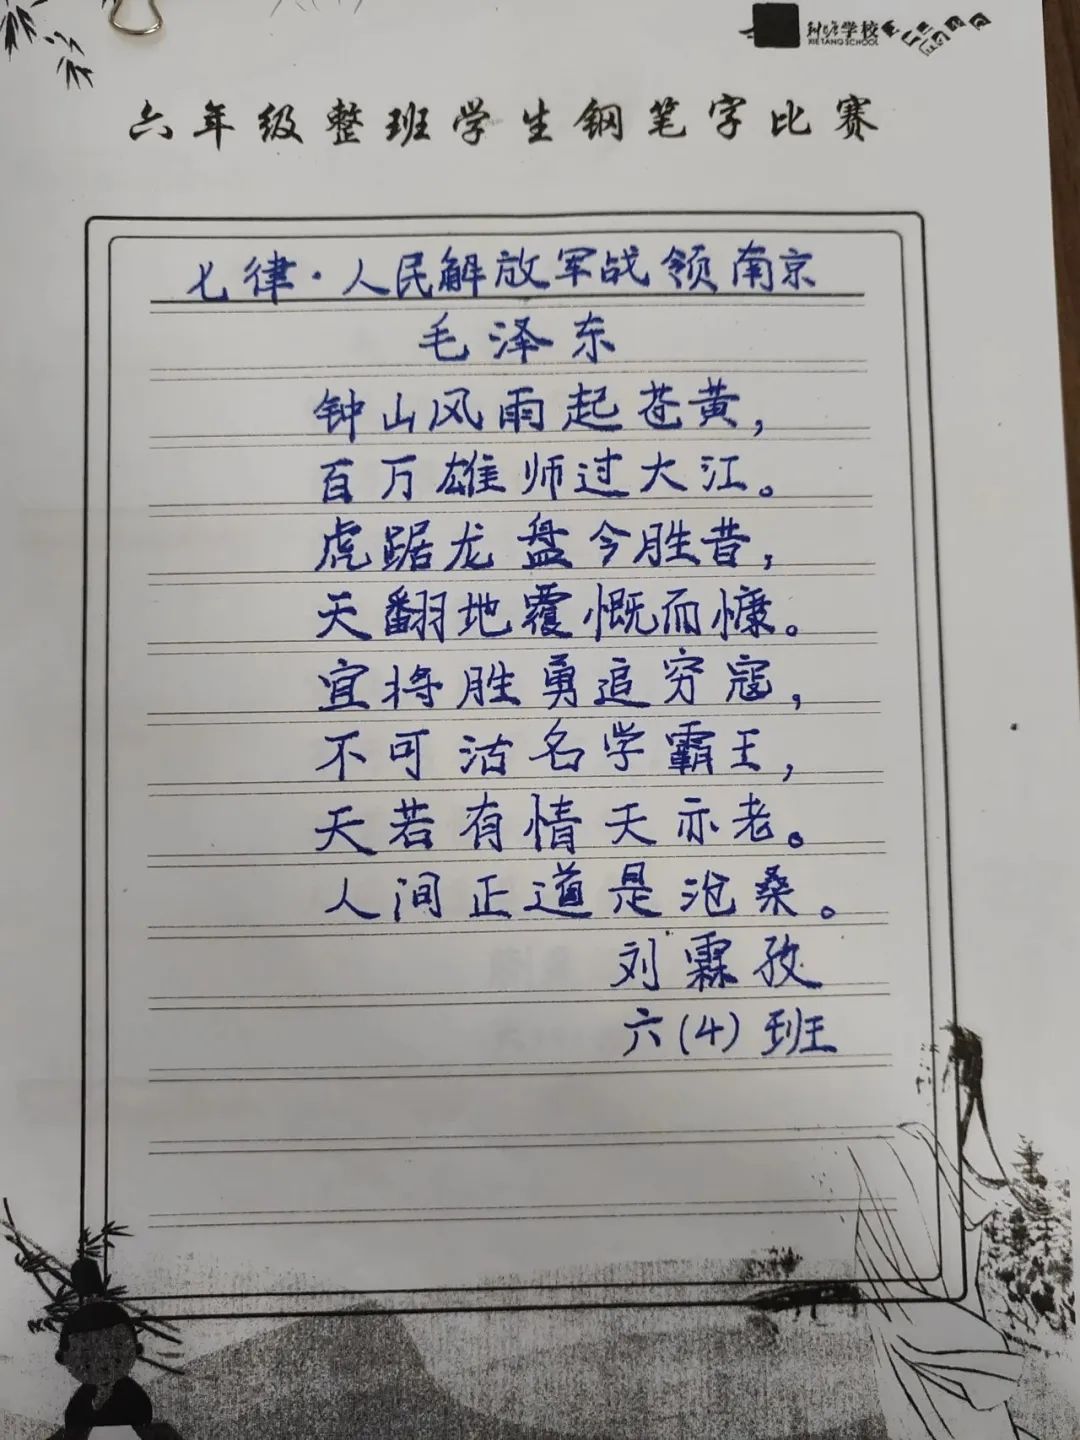 学校
XIETANG SCHOOL
六年级整班学生钢笔字比赛
七律·人民解放军战领南京
毛泽东
钟山风雨起苍黄,
百万雄师过大江。
虎踞龙盘今胜昔,
天翻地覆慨而慷。
宜将胜勇追穷寇,
不可沽名学霸王,
天若有情天亦老。
人间正道是沧桑。
刘霖孜
六(4)班